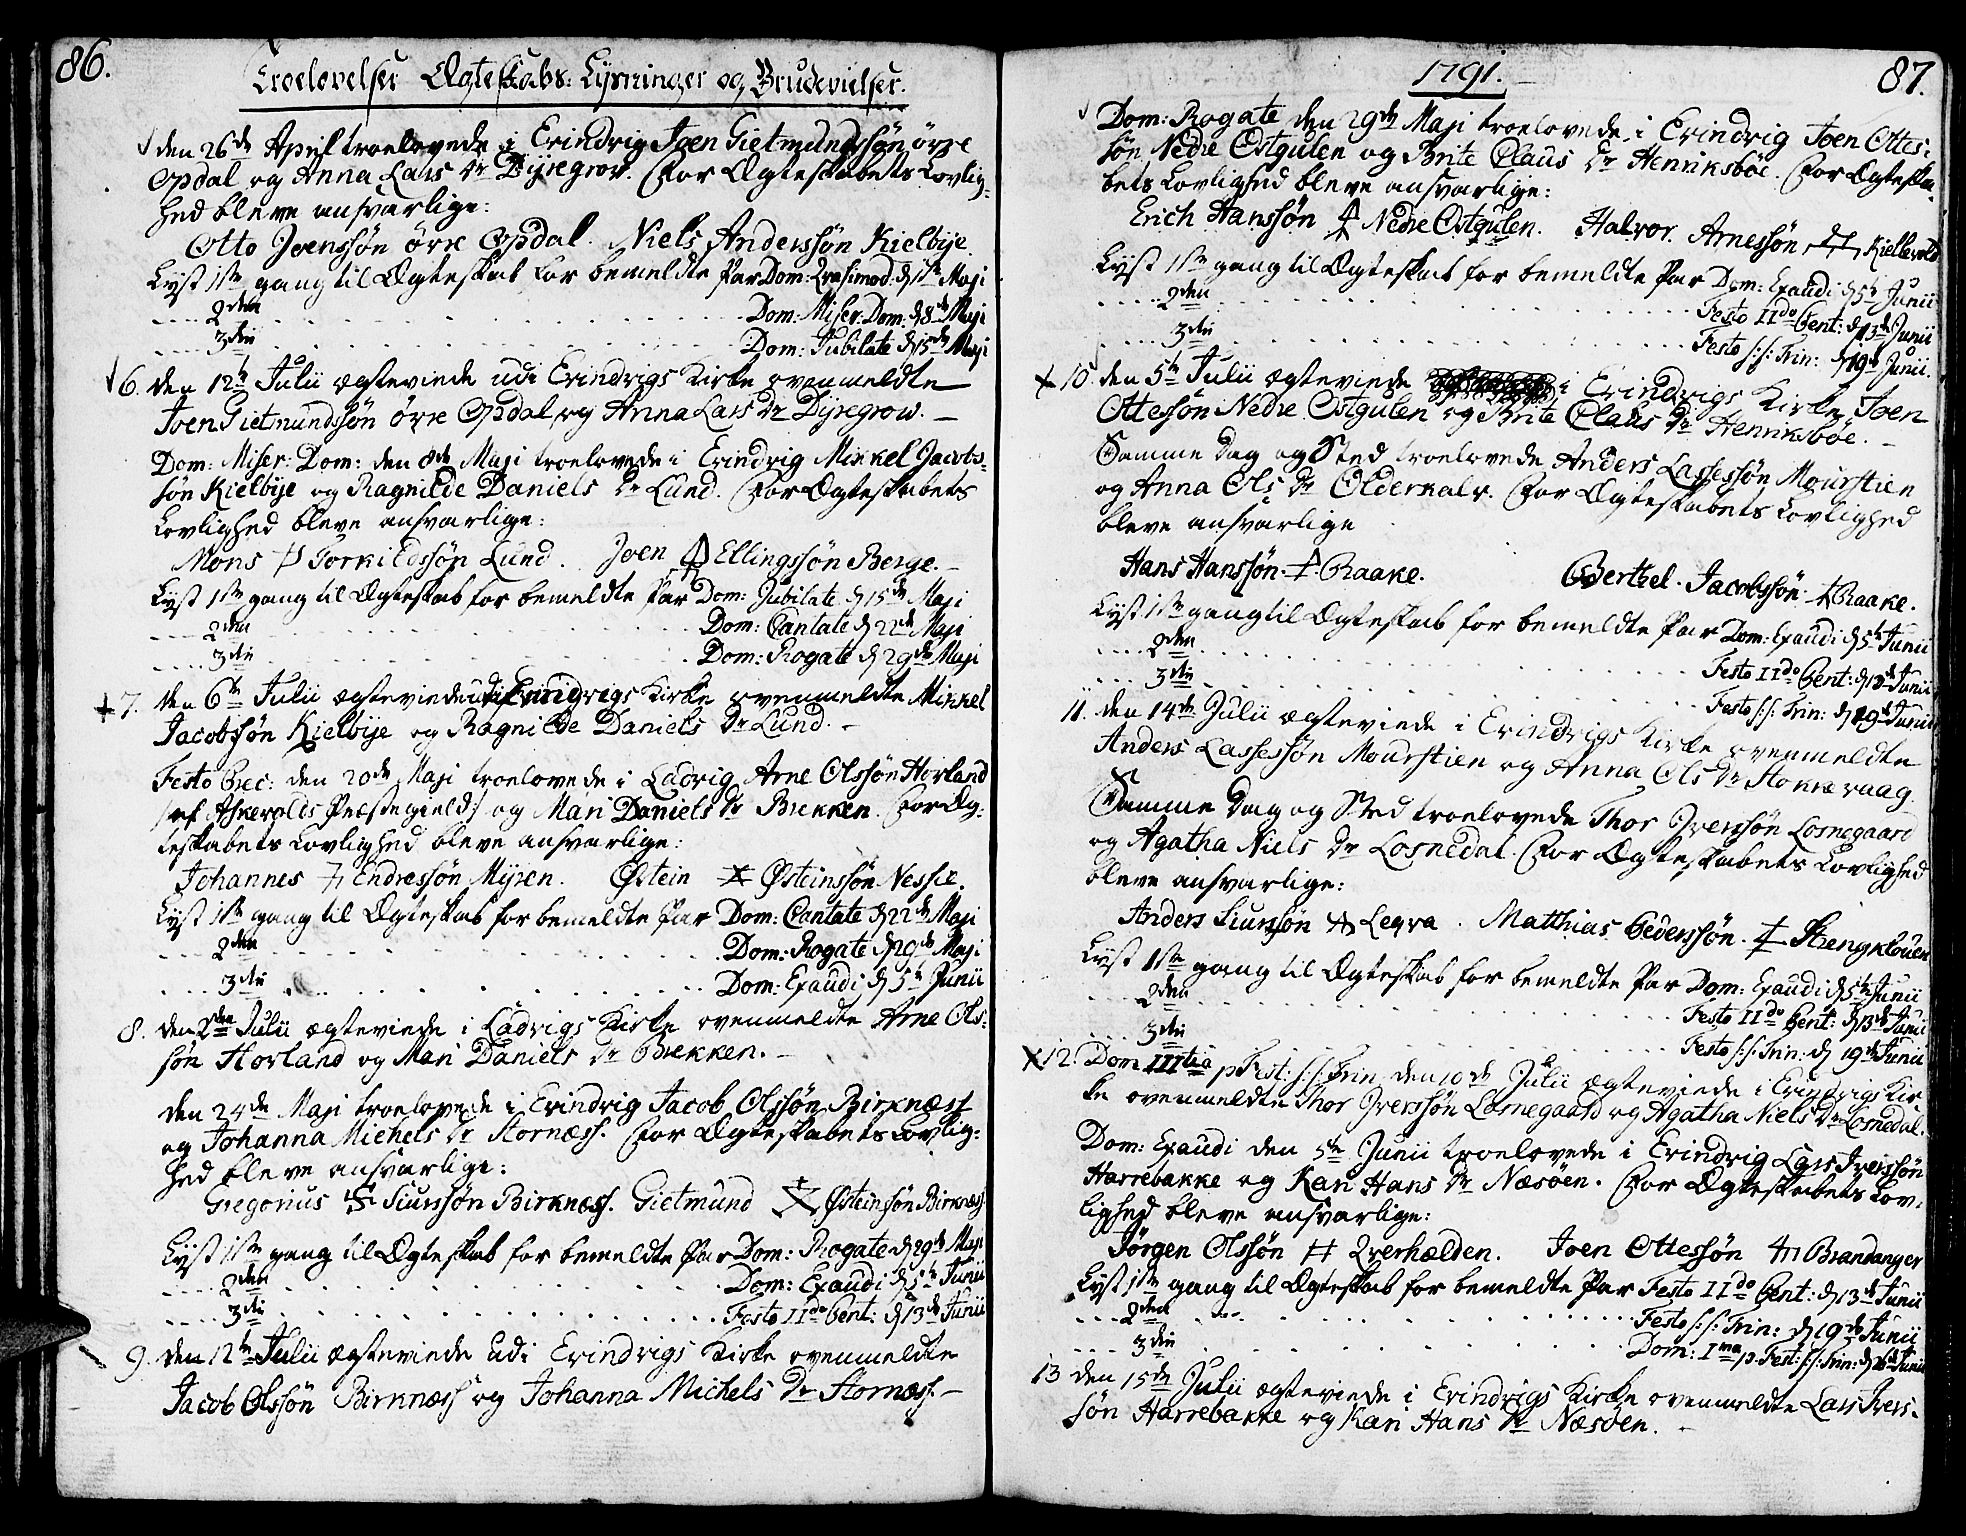 86.
Troelovelser Ægteskabs: Lysninger og Brudevielser.
den 26de April troelovede i Erindrig Joen Gietmundssøn örre
Opdal og Anna Lars Dr Dyregrov. For Ægteskabets Lovlig-
hed bleve ansvarlige:
Otto Joenssøn örre Opdal. Niels Anderssøn Kielbye.
Lyst 1ste gang til Ægteskab for bemeldte Par Dom: Qvasimod: d 1ste Maji
2den Dom: Miser: Dom: d 8de Maji
3die Dom: Jubilate d 15de Maji
6. den 12te Julii ægteviede udi Erindrigs Kirke ovenmeldte
Joen Gietmundssøn örre Opdal og Anna Lars Dr Dyregrov. –
Dom: Miser: Dom: den 8de Maji troelovede i Erindrig Mikkel Jacobs-
søn Kielbye og Ragnilde Daniels Dr Lund. For Ægteskabets
Lovlighed bleve ansvarlige:
Mons Torkildssøn Lund. Joen Ellingssøn Berge. –
Lyst 1ste gang til Ægteskab for bemeldte Par Dom: Jubilate d 15de Maji
2den Dom: Cantate d 22de Maji
3die Dom: Rogate d 29de Maji
7. den 6te Julii ægteviede udi Erindrigs Kirke ovenmeldte Mikkel
Jacobssøn Kielbye og Ragnilde Daniels Dr Lund. –
Festo Prec: den 20de Maji troelovede i Ladvig Arne Olssøn Horland
/:af Askevolds Præstegield:/ og Mari Daniels Dr Brekken. For Æg-
teskabets Lovlighed bleve ansvarlige:
Johannes Endressøn Myren. Østein Østeinssøn Nessie.
Lyst 1ste gang til Ægteskab for bemeldte Par Dom: Cantate d 22de Maji
2den Dom: Rogate d 29de Maji
3die Dom: Exaudi d 5te Junii
8. den 2den Julii ægteviede i Ladvigs Kirke ovenmeldte Arne Ols-
søn Horland og Mari Daniels Dr Brekken. –
den 24de Maji troelovede i Erindrig Jacob Olssøn Birknæss
og Johanna Michels Dr Stornæss. For Ægteskabets Lovlig-
hed bleve ansvarlige:
Gregorius Siurssøn Birknæss. Gietmund Østeinssøn Birknæss
Lyst 1ste gang til Ægteskab for bemeldte Par Dom: Rogate d 29de Maji
2den Dom: Exaudi d 5te Junii
3die Festo IIdo Pent: d 13de Junii
9. den 12te Julii ægteviede udi Erindrigs Kirke ovenmeldte
Jacob Olssøn Birknæss og Johanna Michels Dr Stornæss. –
1791.
87.
Dom: Rogate den 29de Maji troelovede i Erindrig Joen Ottes-
søn Nedre Østgulen og Brite Claus Dr Henriksböe. For Ægteska-
bets Lovlighed bleve ansvarlige:
Erich Hanssøn Nedre Østgulen. Halvor Arnessøn Kiellevold
Lyst 1ste gang til Ægteskab for bemeldte Par Dom: Exaudi d 5te Junii
2den Festo IIdo Pent: d 13de Junii
3die Festo s:s: Trin: d 19de Junii.
10. den 5te Julii ægteviede i Erindrigs Kirke Joen
Ottessøn Nedre Østgulen og Brite Claus Dr Henriksböe. –
Samme Dag og Sted troelovede Anders Lassessøn Mourstien
og Anna Ols Dr Olderkalv. For Ægteskabets Lovlighed
bleve ansvarlige
Hans Hanssøn Raake. Berthel Jacobssøn Raake.
Lyst 1ste gang til Ægteskab for bemeldte Par Dom: Exaudi d 5te Junii
2den Festo IIdo Pent: d 13de Junii
3die Festo s:s: Trin: d 19de Junii
11. den 14de Julii ægteviede i Erindrigs Kirke ovenmeldte
Anders Lassessøn Mourstien og Anna Ols Dr Stokkevaag.
Samme Dag og Sted troelovede Thor Iverssøn Losnegaard
og Agatha Niels Dr Losnedal. For Ægteskabets Lovlighed
bleve ansvarlige:
Anders Siurssøn Leqva. Matthias Pederssøn Strengklouen
Lyst 1ste gang til Ægteskab for bemeldte Par Dom: Exaudi d 5te Junii
2den Festo IIdo Pent: d 13de Junii
3die Festo s:s: Trin: d 19de Junii
12. Dom IIItia p Fest: s:s: Trin: den 10de Julii ægteviede i Erindrigs Kir
ke ovenmeldte Thor Iverssøn Losnegaard og Agatha Niels Dr Losnedal.
Dom: Exaudi den 5te Junii troelovede i Erindrig Lars Iverssøn
Harrebakke og Kari Hans Dr Næsöen. For Ægteskabets Lov-
lighed bleve ansvarlige:
Jörgen Olssøn Qverhælden. Joen Ottessøn Brandanger
Lyst 1ste gang til Ægteskab for bemeldte Par Festo IIdo Pent: d 13de Junii
2den Festo s:s: Trin: d 19de Junii
3die Dom: Ima p. Fest: s:s: Trin: d 26de Junii
13 den 15de Julii ægteviede i Erindrigs Kirke ovenmeldte Lars Ivers-
søn Harrebakke og Kari Hans Dr Næsöen. –